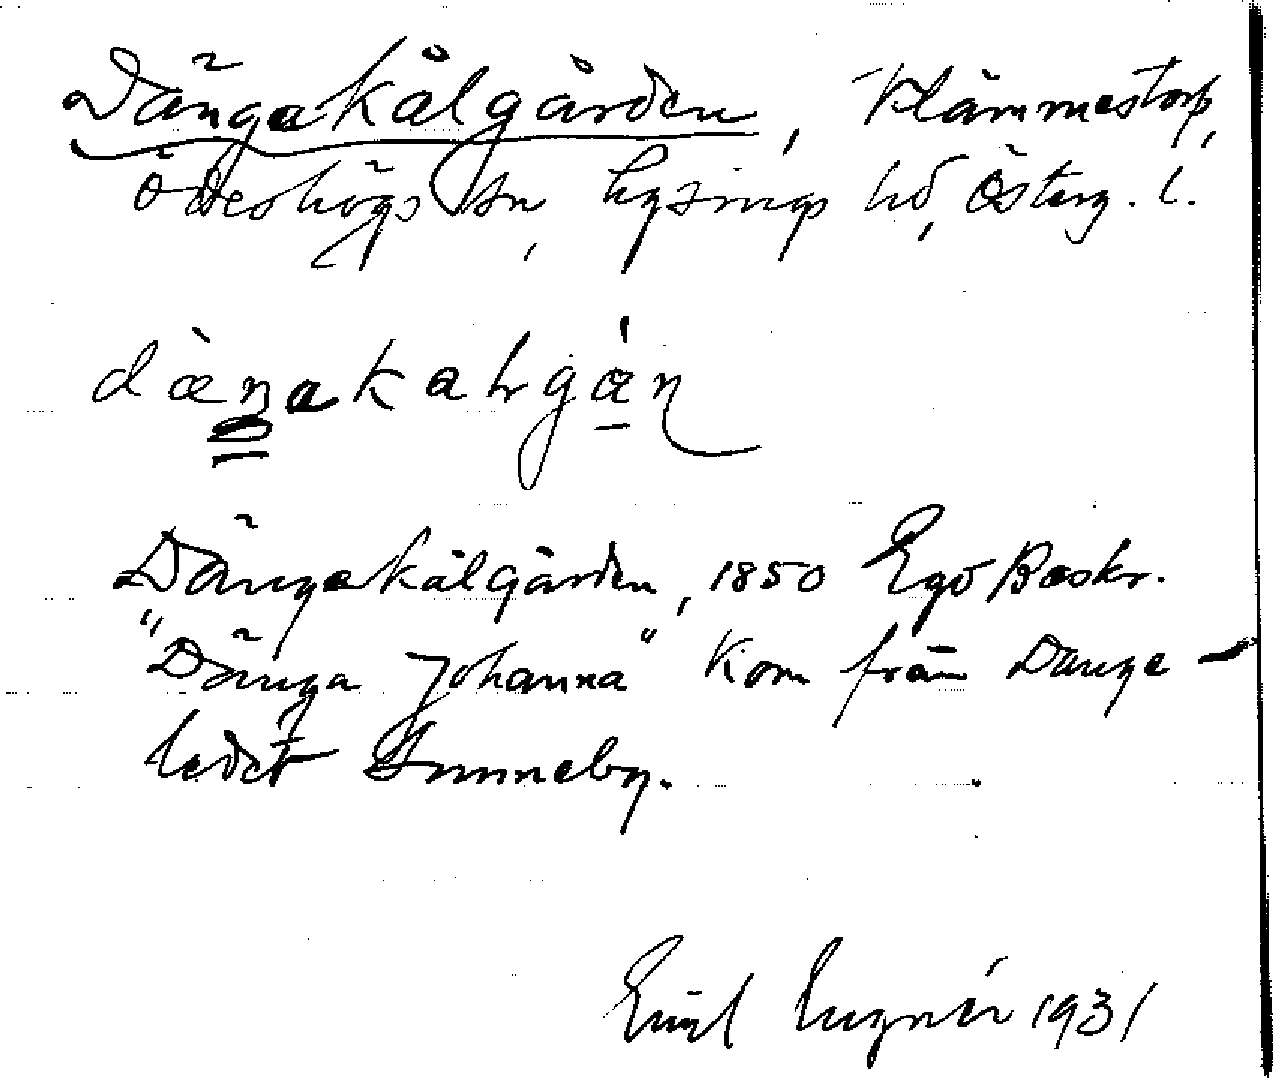 Dängakålgården, Klämmestorp,
Ödeshögs sn, Lysings hd, Österg. l.
dæ̀ŋakalgán
Dängakålgården, 1850 Ego Beskr.
"Dänga Johanna" kom från Dange-
ledet Sunneby.
Emil 1931